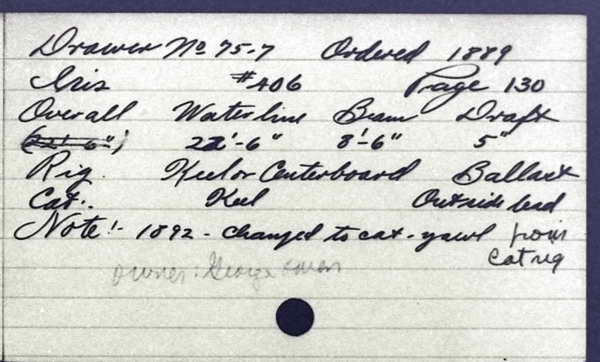 Drawer No 75-7 Ordered 1889
Iris #406 Page 130
Overall Waterline Beam Draft
(22'-6") 22'-6" 8'-6" 5"
Rig. Keel or Centerboard Ballast
Cat. Keel Outside lead
Note:- 1892 - changed to cat-yawl from
cat rig
owner: George